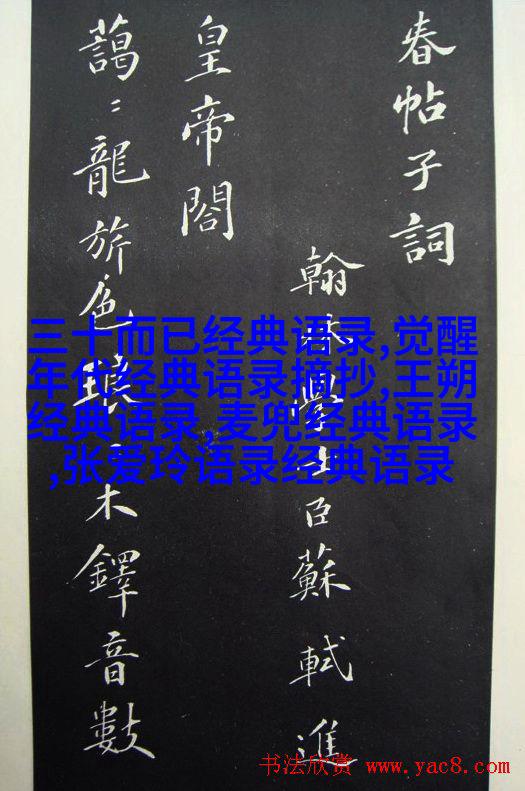 春帖子詞
翰林學士臣蘇軾進
皇帝閣
藹〻龍旂色琅〻木鐸音數
三十而已经典语录,觉醒
年代经典语录摘抄,王朔
经典语录,麦兜经典语录
,张爱玲语录经典语录
书法欣赏 www.yac8.com